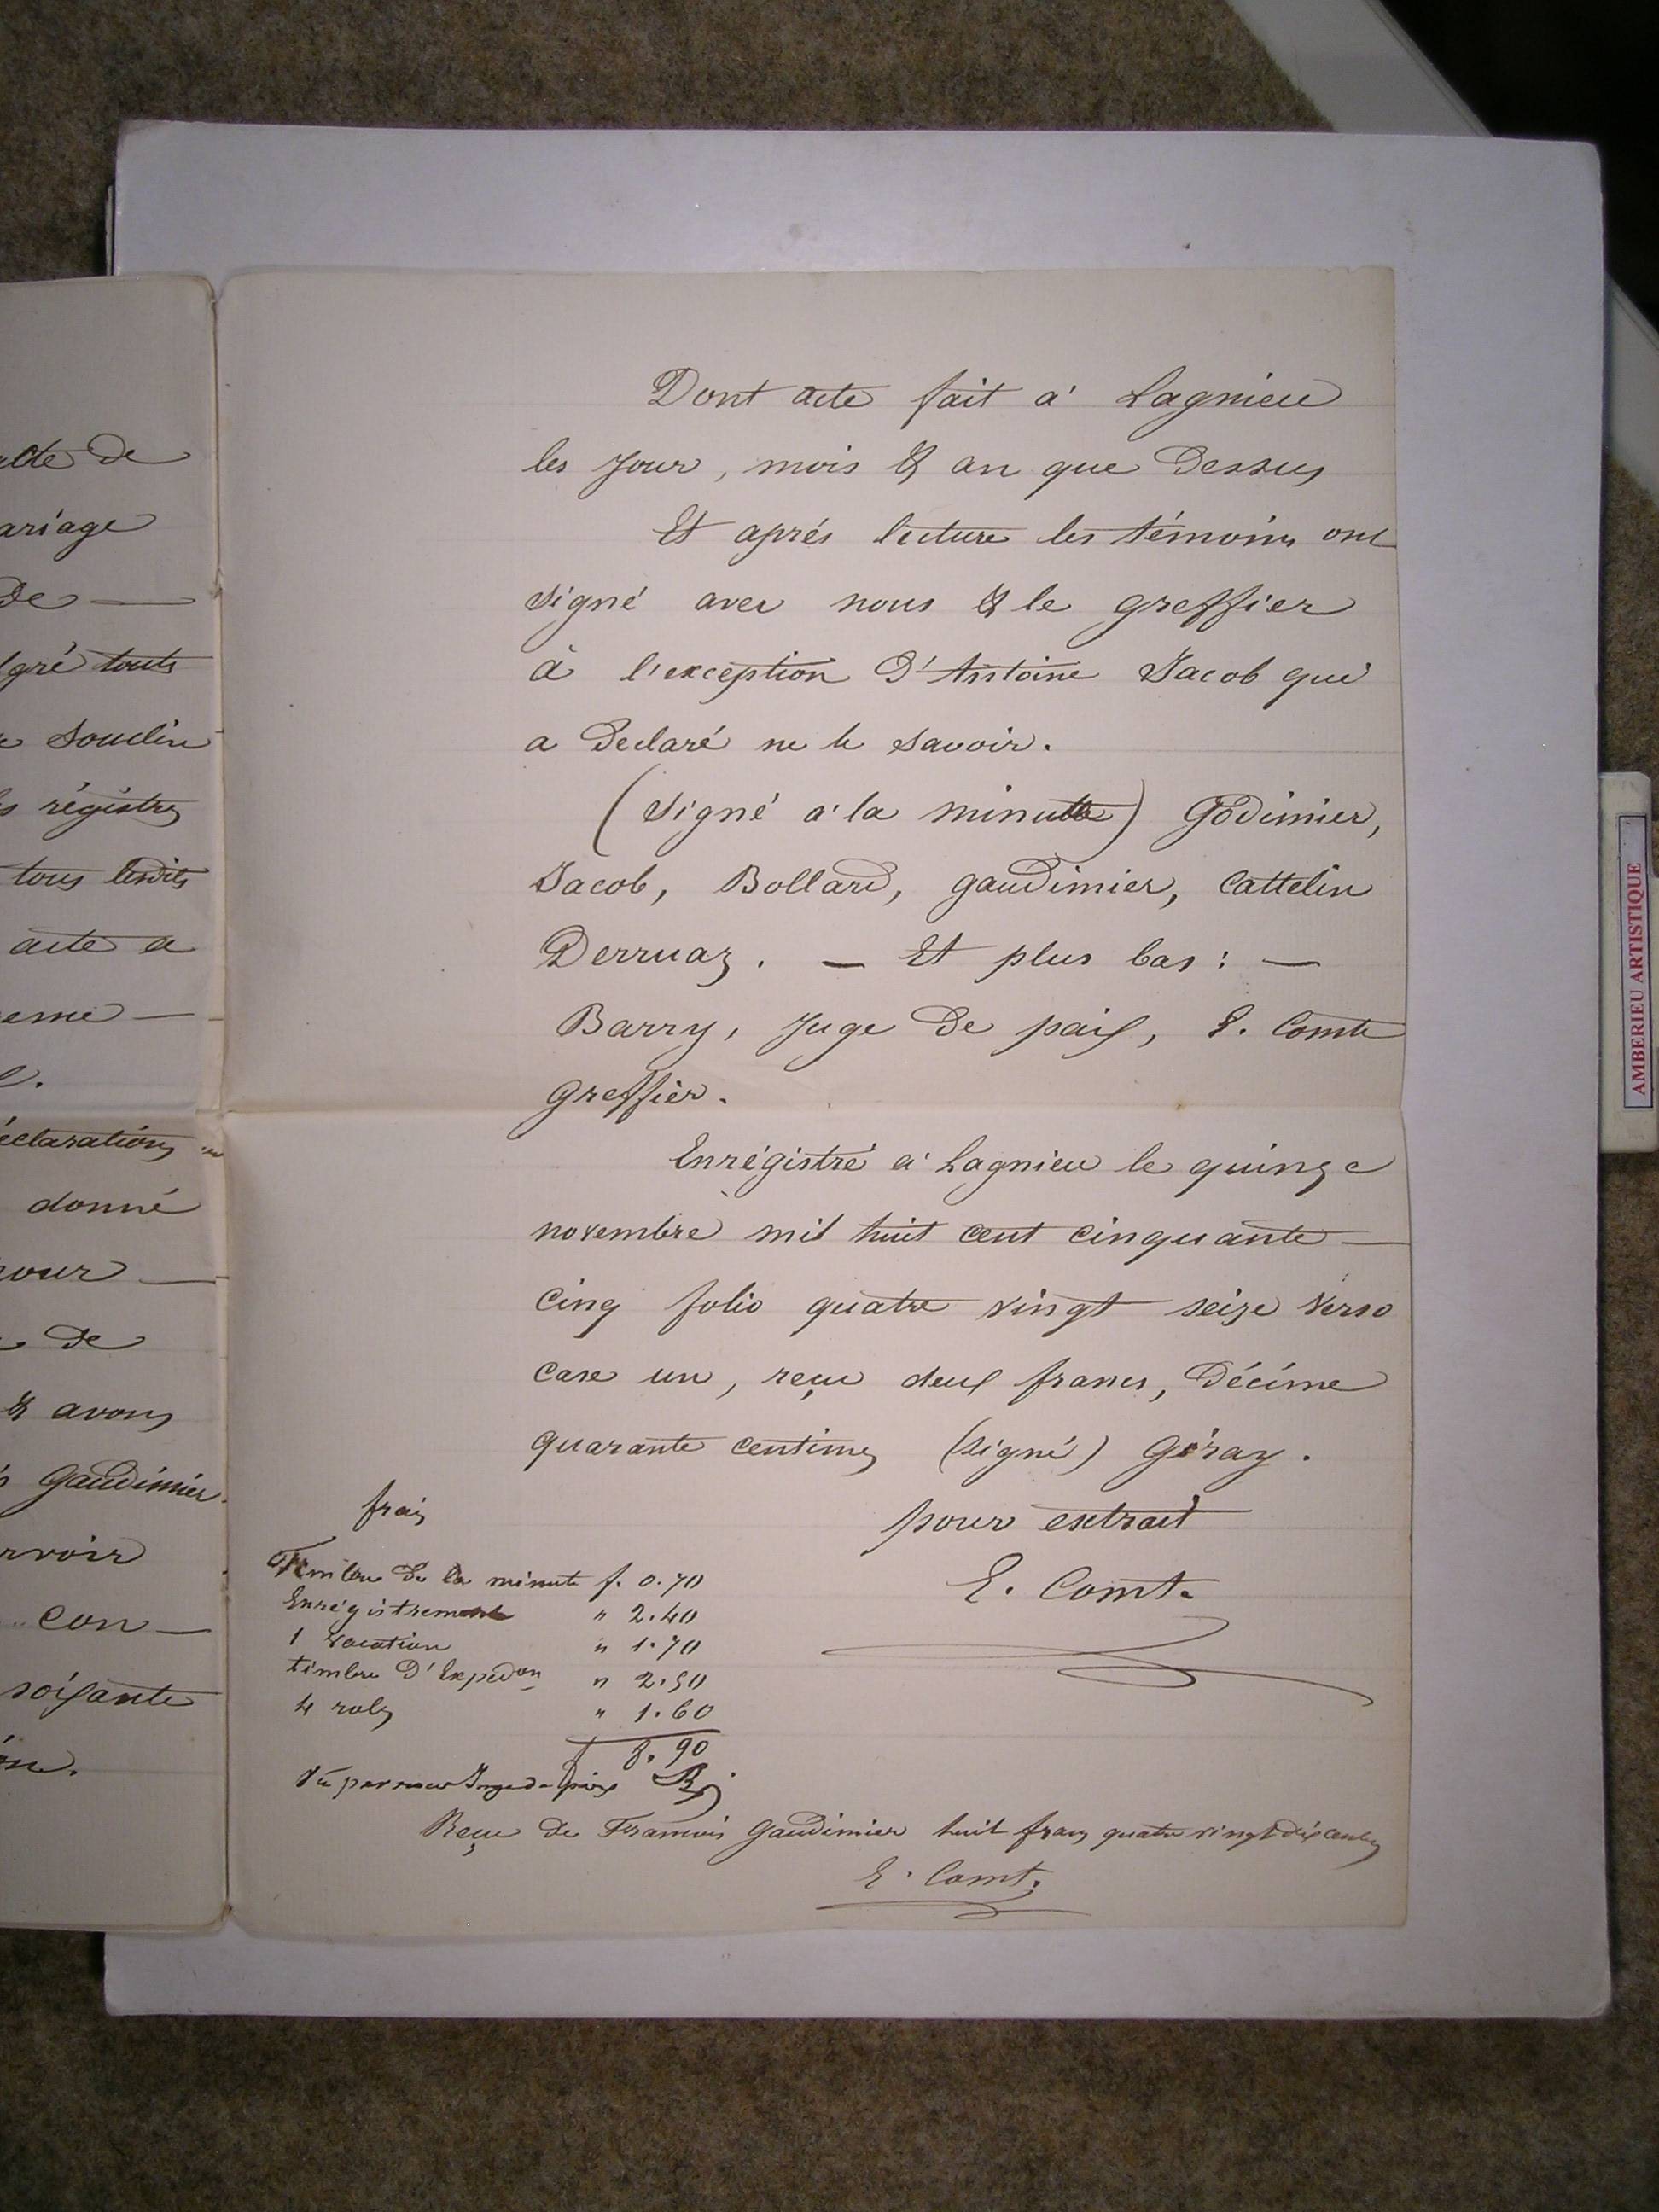 alte de
ariage
de —
lgré touts
e Soudin
s régistres
tous lesdits
acte a
eme —
e.
éclarations
donné
our —
de
& avons
Gaudimier
rvoir
con —
soixante
Dont acte fait à Lagnieu
les jour, mois & an que dessus
Et aprés lecture les témoins ont
signé avec nous & le greffier
à l'exception d'Antoine Jacob qui
a declaré ne le savoir.
(Signé à la minute) Godimier,
Jacob, Bollard, gaudimier, Cattelin
Derruaz. — Et plus bas : —
Barry, juge de paix, E. Comte
greffier.
Enrégistré à Lagnieu le quinze
novembre mil huit cent cinquante —
cinq folio quatre vingt seize verso
case un, reçu deux francs, décime
quarante centimes (signé) Giray.
pour extrait
E. Comte
frais
Timbre de la minute f. 0.70
Enrégistrement " 2.40
1 vacation " 1.70
timbre d'Expedon " 2.50
4 roles " 1.60
f 8.90
Vu par nous Juge de paix
Reçu de Francois Gaudimier huit francs quatre vingt dix centes
E. Comte
AMBERIEU ARTISTIQUE